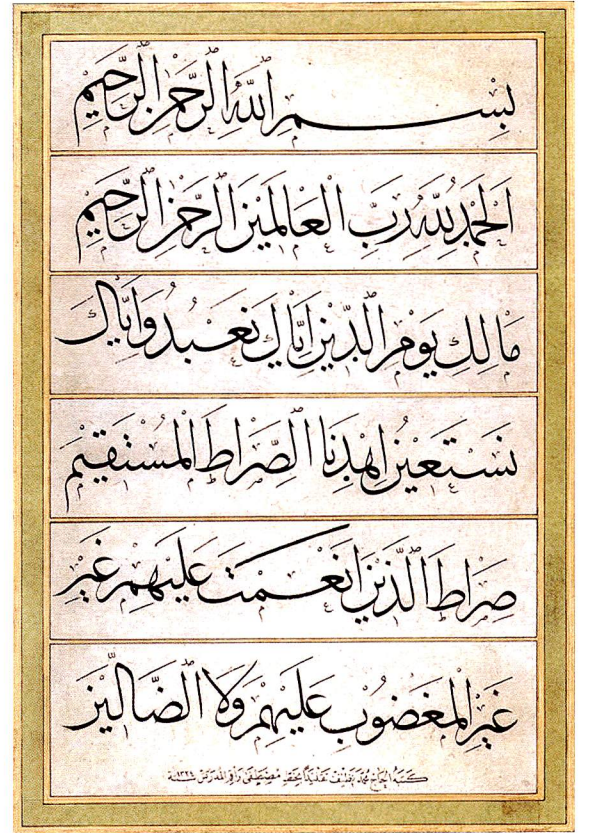 بِسْمِ اللّٰهِ الرَّحْمٰنِ الرَّحِيْمِ
اَلْحَمْدُ لِلّٰهِ رَبِّ الْعَالَمِيْنَ الرَّحْمٰنِ الرَّحِيْمِ
مَالِكِ يَوْمِ الدِّيْنِ اِيَّاكَ نَعْبُدُ وَاِيَّاكَ
نَسْتَعِيْنُ اِهْدِنَا الصِّرَاطَ الْمُسْتَقِيْمَ
صِرَاطَ الَّذِيْنَ اَنْعَمْتَ عَلَيْهِمْ غَيْرِ
غَيْرِ الْمَغْضُوْبِ عَلَيْهِمْ وَلَا الضَّالِّيْنَ
كتبه الحاج محمد نظيف تقليدًا بخط مصطفى راقم